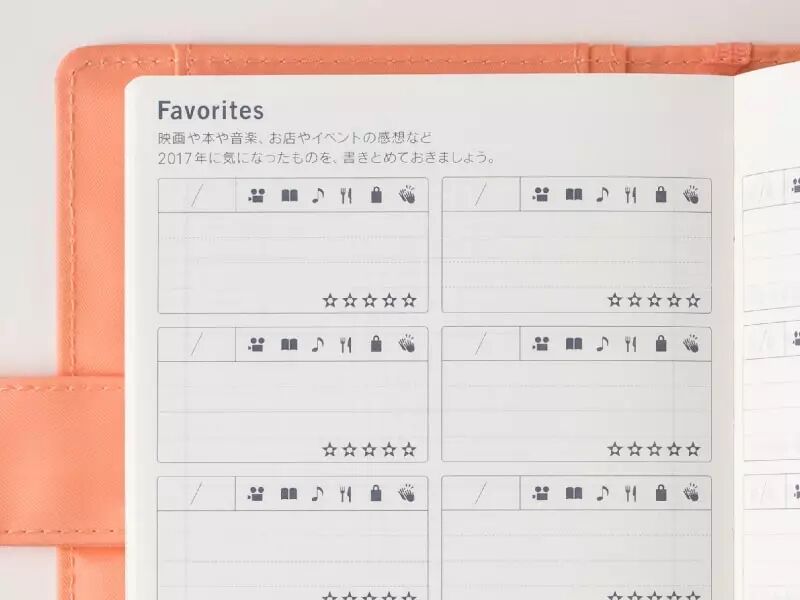 Favorites
映画や本や音楽、お店やイベントの感想など
2017年に気になったものを、書きとめておきましょう。